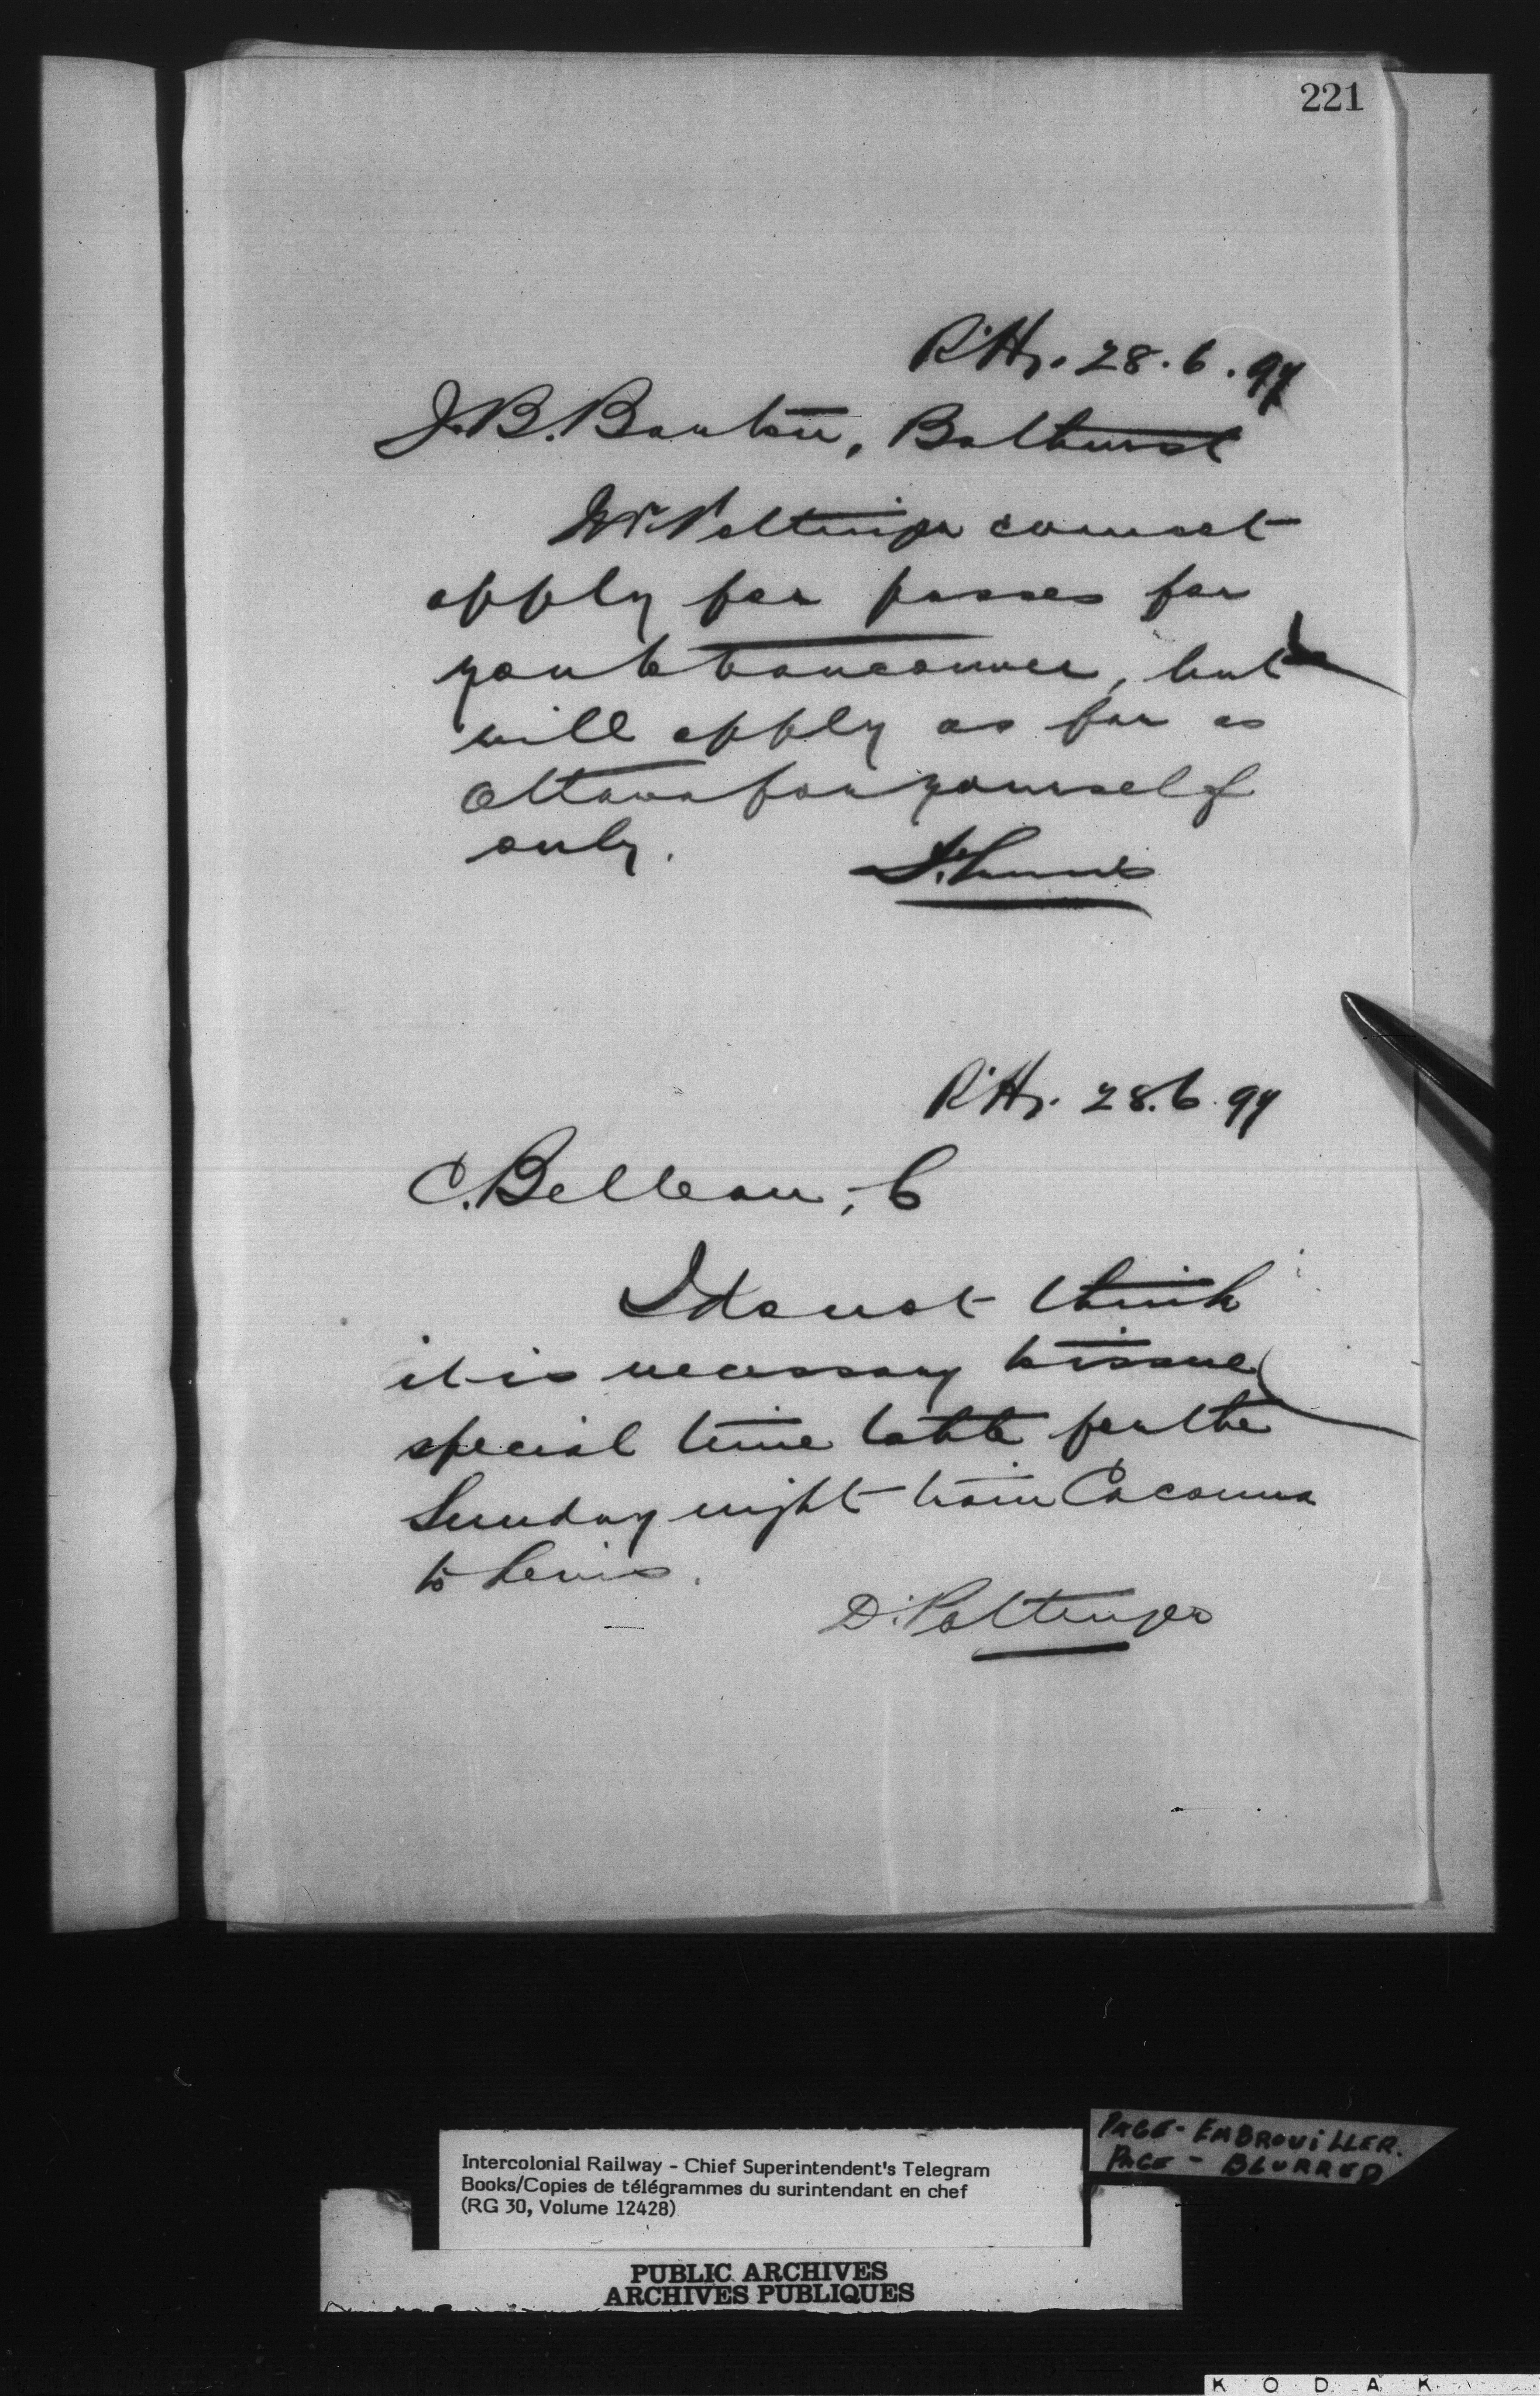 221
R'Hr. 28.6.97
J.B. Bankin, Bathurst
Mr. Pottinger cannot
apply for passes for
you to Vancouver, but
will apply as far as
Ottawa for yourself
only.
R'Hr. 28.6.97
C. Belleau, C
I do not think
it is necessary to issue
special time table for the
Sunday night train Cacouna
to Levis.
D. Pottinger
PAGE - EMBROUILLER.
PAGE - BLURRED
Intercolonial Railway - Chief Superintendent's Telegram
Books/Copies de télégrammes du surintendant en chef
(RG 30, Volume 12428)
PUBLIC ARCHIVES
ARCHIVES PUBLIQUES
KODAK